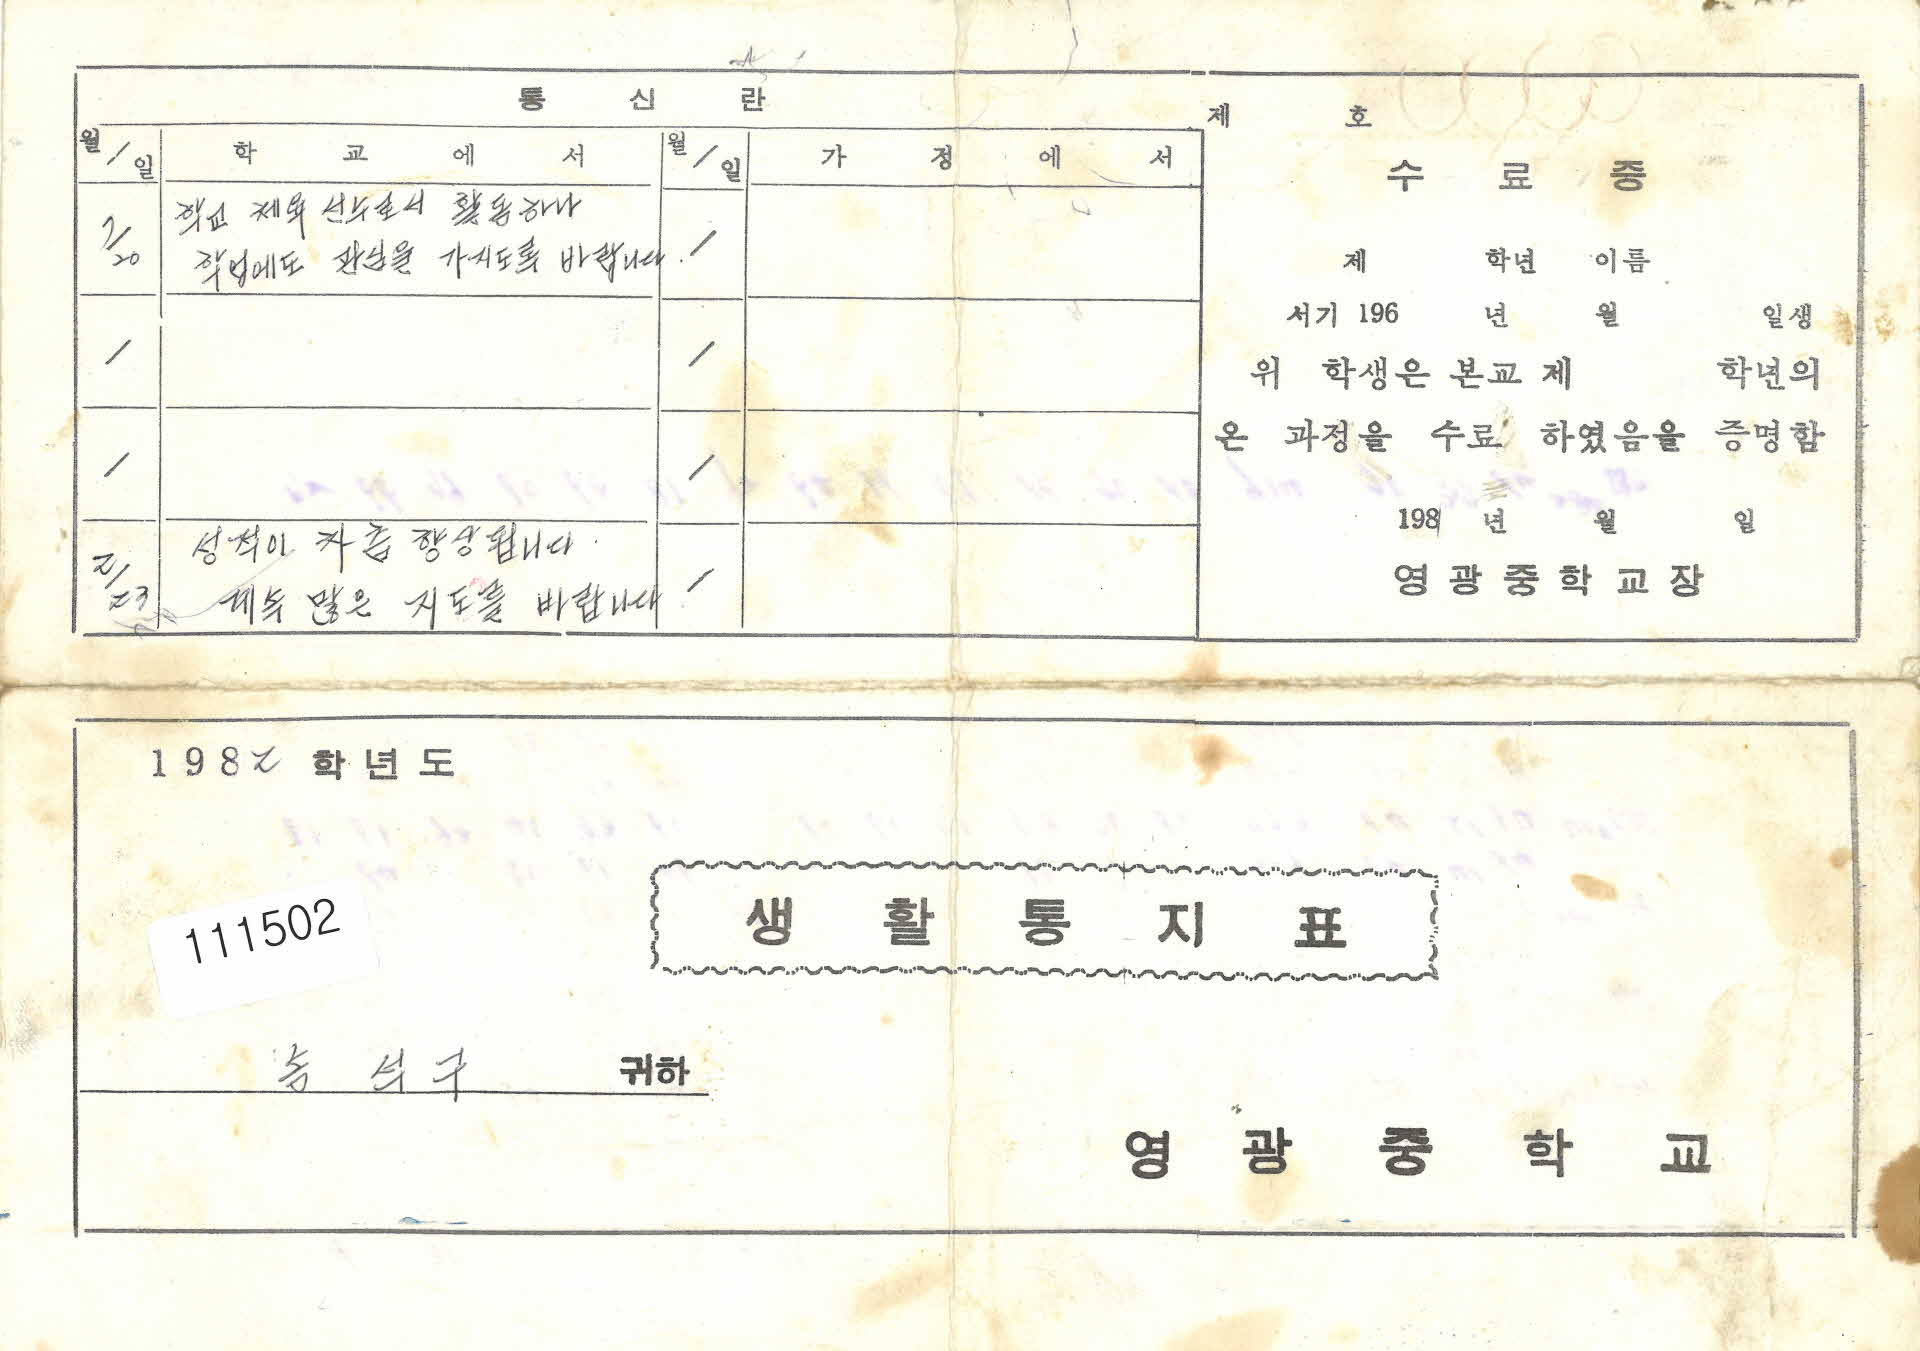 통 신 란
월/일 학 교 에 서 월/일 가 정 에 서
7/20 학교 체육 선수로서 활동하나
학업에도 관심을 가지도록 바랍니다.
/
/
/
/
/
2/23 성적이 차츰 향상됩니다.
계속 많은 지도를 바랍니다.
/
제 호
수 료 증
제 학년 이름
서기 196 년 월 일생
위 학생은 본교 제 학년의
온 과정을 수료 하였음을 증명함
198 년 월 일
영광중학교장
1982 학년도
생 활 통 지 표
111502
송 석 구 귀하
영 광 중 학 교